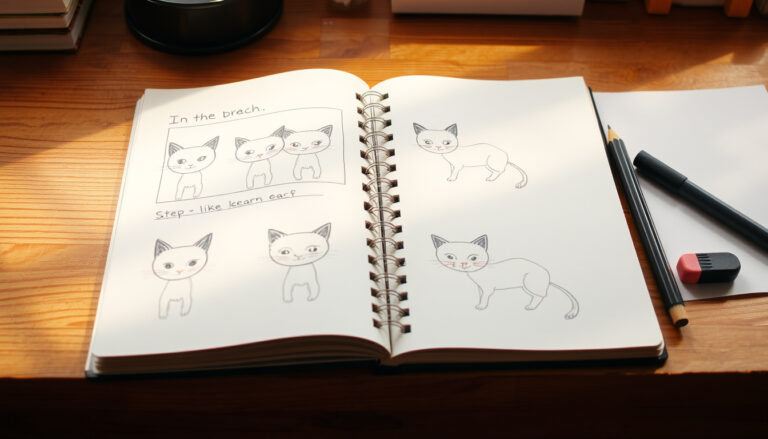 In the brech.
Step - like kearn earf